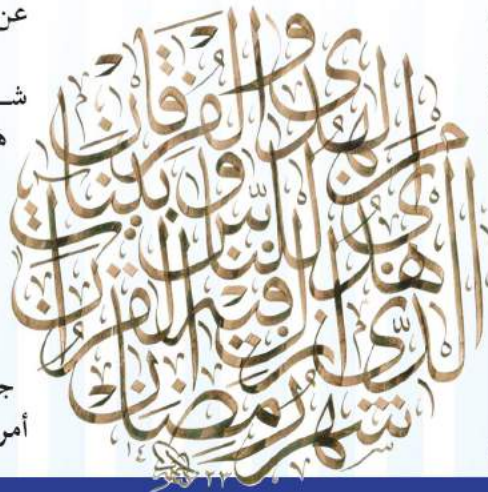 عن
شهر رمضان
الذي انزل فيه القرآن
هدى للناس وبينات
من الهدى والفرقان
أمر